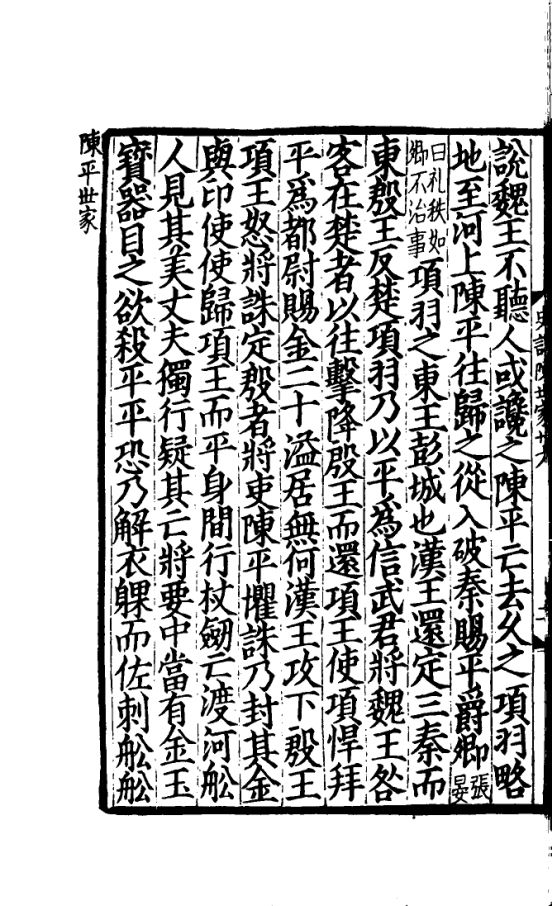 說魏王不聽人或讒之陳平亡去久之項羽略
地至河上陳平往歸之從入破秦賜平爵卿張晏
曰礼秩如卿不治事項羽之東王彭城也漢王還定三秦而
東殷王反楚項羽乃以平為信武君將魏王咎
客在楚者以往擊降殷王而還項王使項悍拜
平為都尉賜金二十溢居無何漢王攻下殷王
項王怒將誅定殷者將吏陳平懼誅乃封其金
與印使使歸項王而平身間行杖劒亡渡河舩
人見其美丈夫獨行疑其亡將要中當有金玉
寶器目之欲殺平平恐乃解衣躶而佐刺舩舩
陳平世家